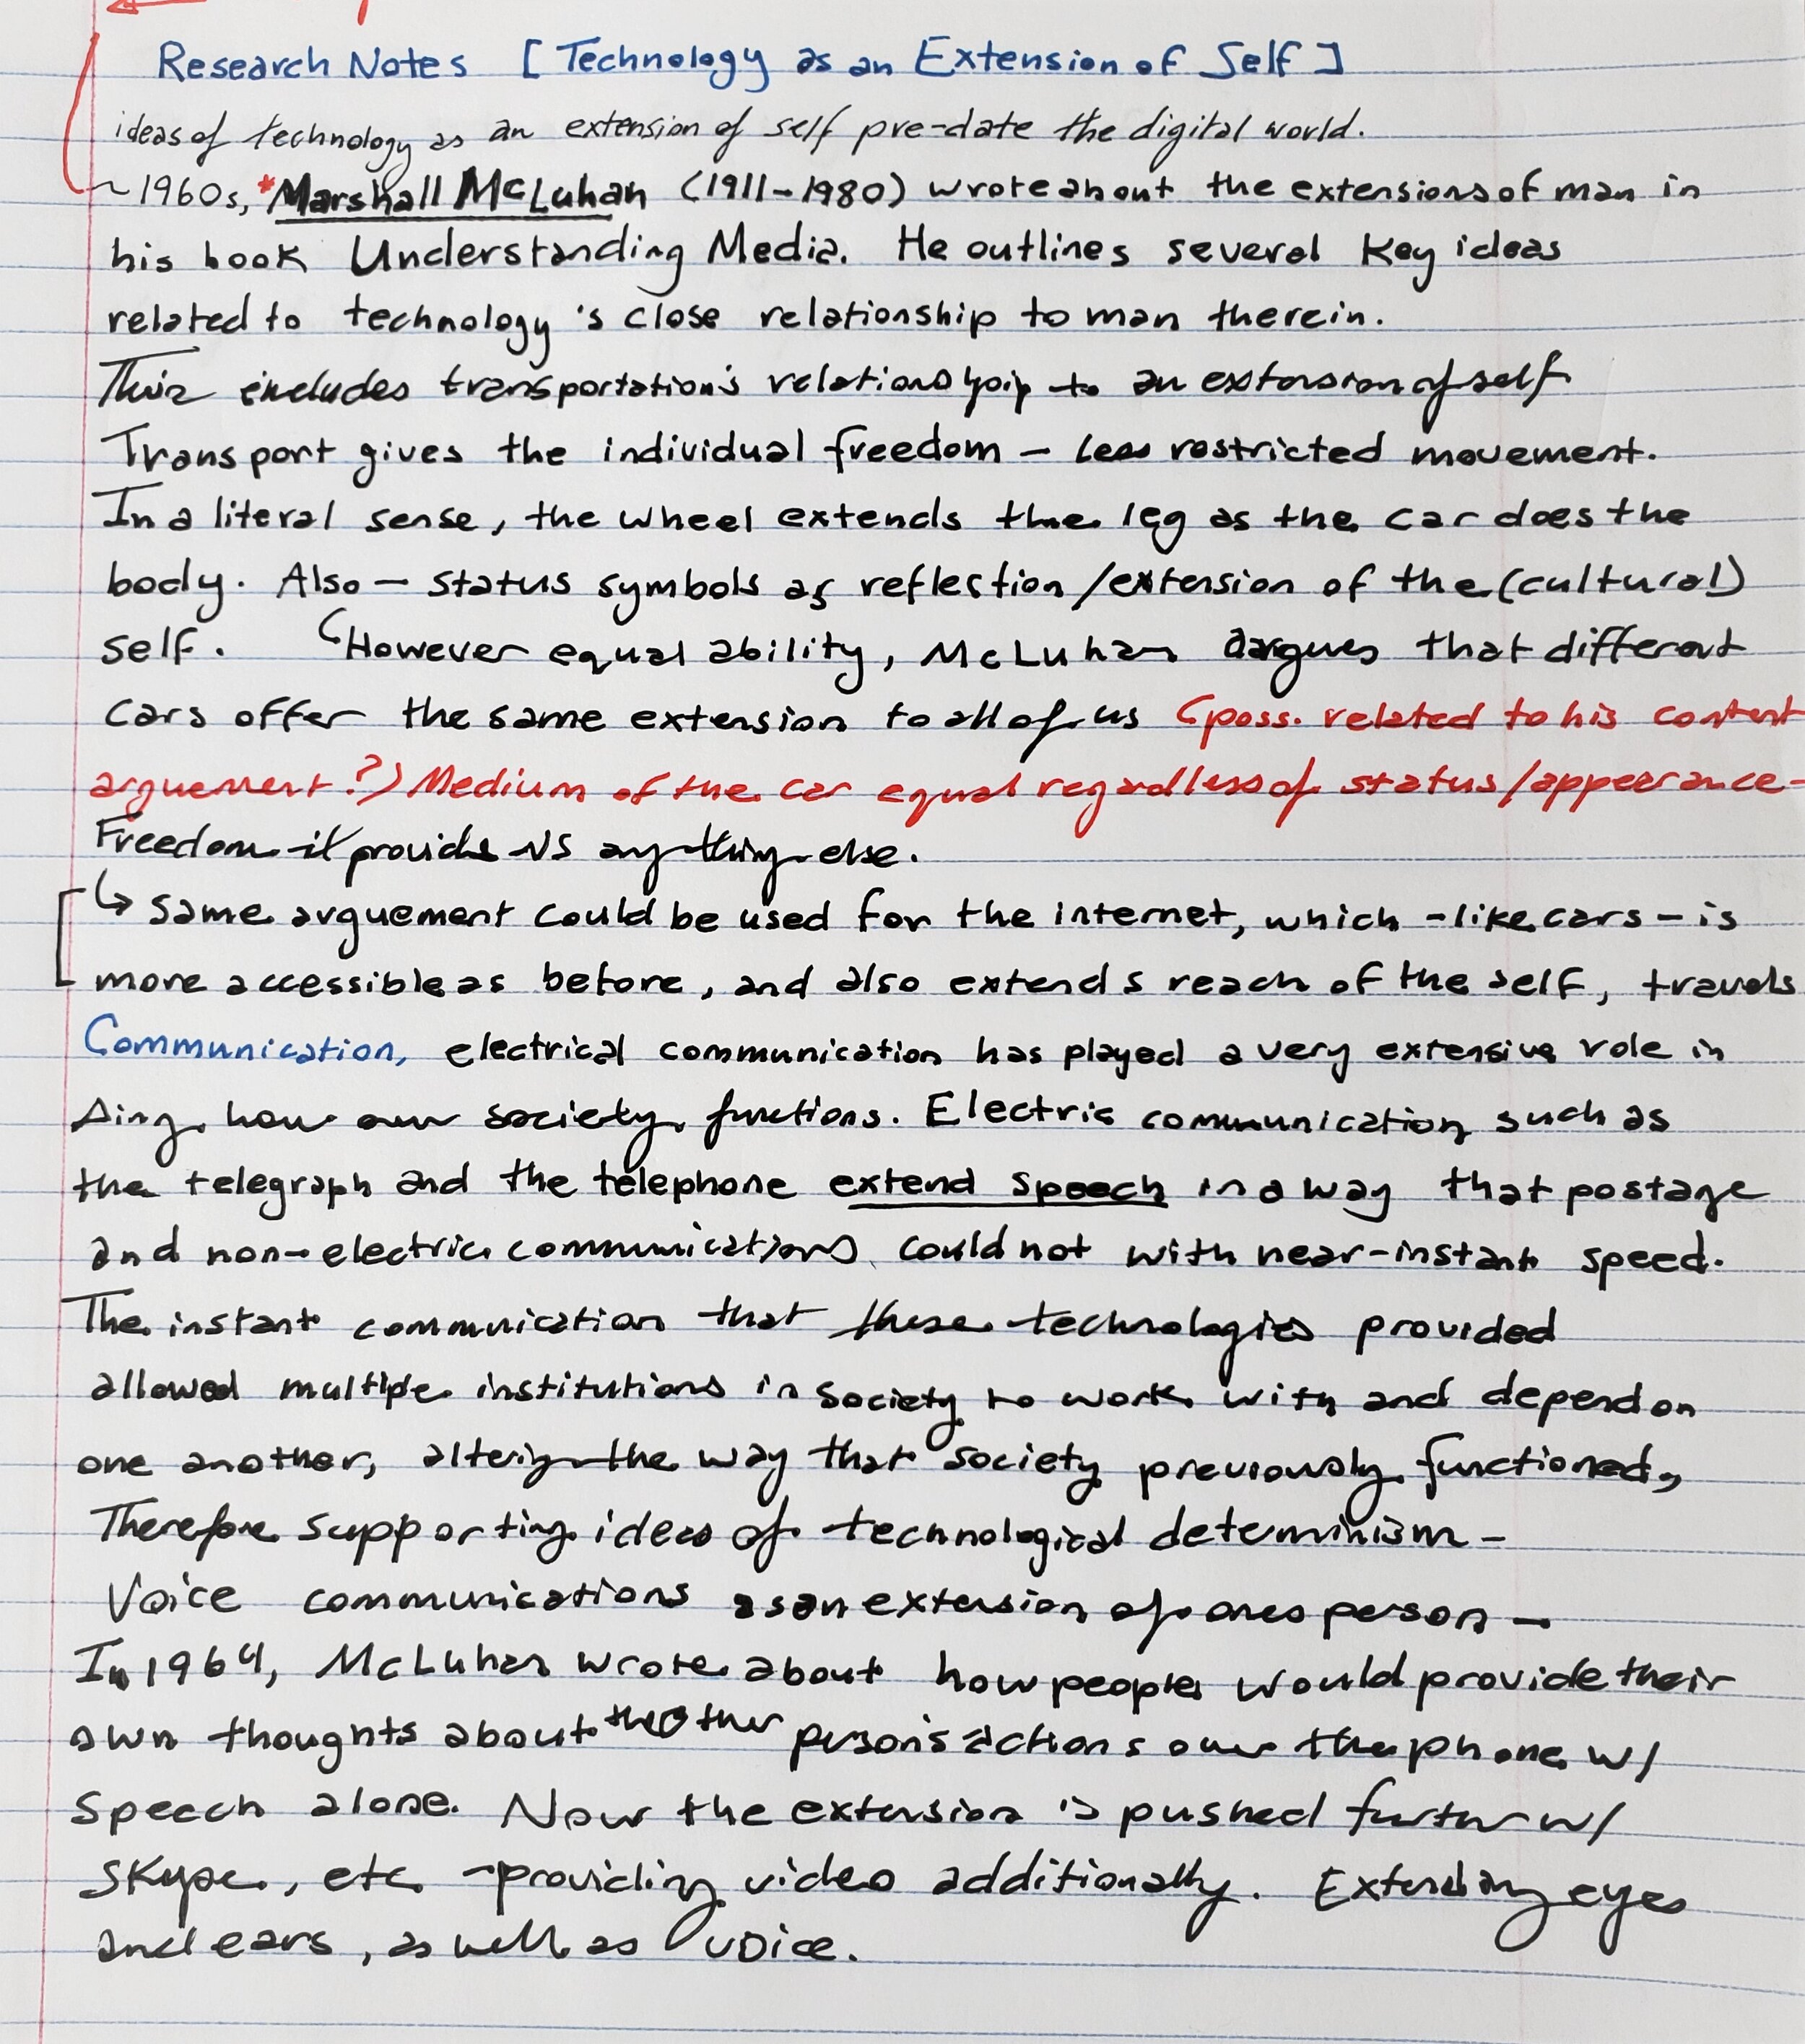 Research Notes [Technology as an Extension of Self]
ideas of technology as an extension of self pre-date the digital world.
~1960s, *Marshall McLuhan (1911-1980) wrote about the extensions of man in
his book Understanding Media. He outlines several key ideas
related to technology's close relationship to man therein.
This includes transportation's relationship to an extension of self
Transport gives the individual freedom - less restricted movement.
In a literal sense, the wheel extends the leg as the car does the
body. Also - status symbols as reflection/extension of the (cultural)
self. (However equal ability, McLuhan argues that different
cars offer the same extension to all of us (poss. related to his content
arguement?) Medium of the car equal regardless of status/appearance-
Freedom it provides vs anything else.
↳ same arguement could be used for the internet, which - like cars - is
more accessible as before, and also extends reach of the self, travels
Communication, electrical communication has played a very extensive role in
how our society functions. Electric communication such as
the telegraph and the telephone extend speech in a way that postage
and non-electric communications could not with near-instant speed.
The instant communication that these technologies provided
allowed multiple institutions in society to work with and depend on
one another, altering the way that society previously functioned,
Therefore supporting ideas of technological determinism -
Voice communications as an extension of ones person -
In 1964, McLuhan wrote about how people would provide their
own thoughts about the other person's actions over the phone w/
speech alone. Now the extension is pushed further w/
Skype, etc - providing video additionally. Extending eyes
and ears, as well as voice.